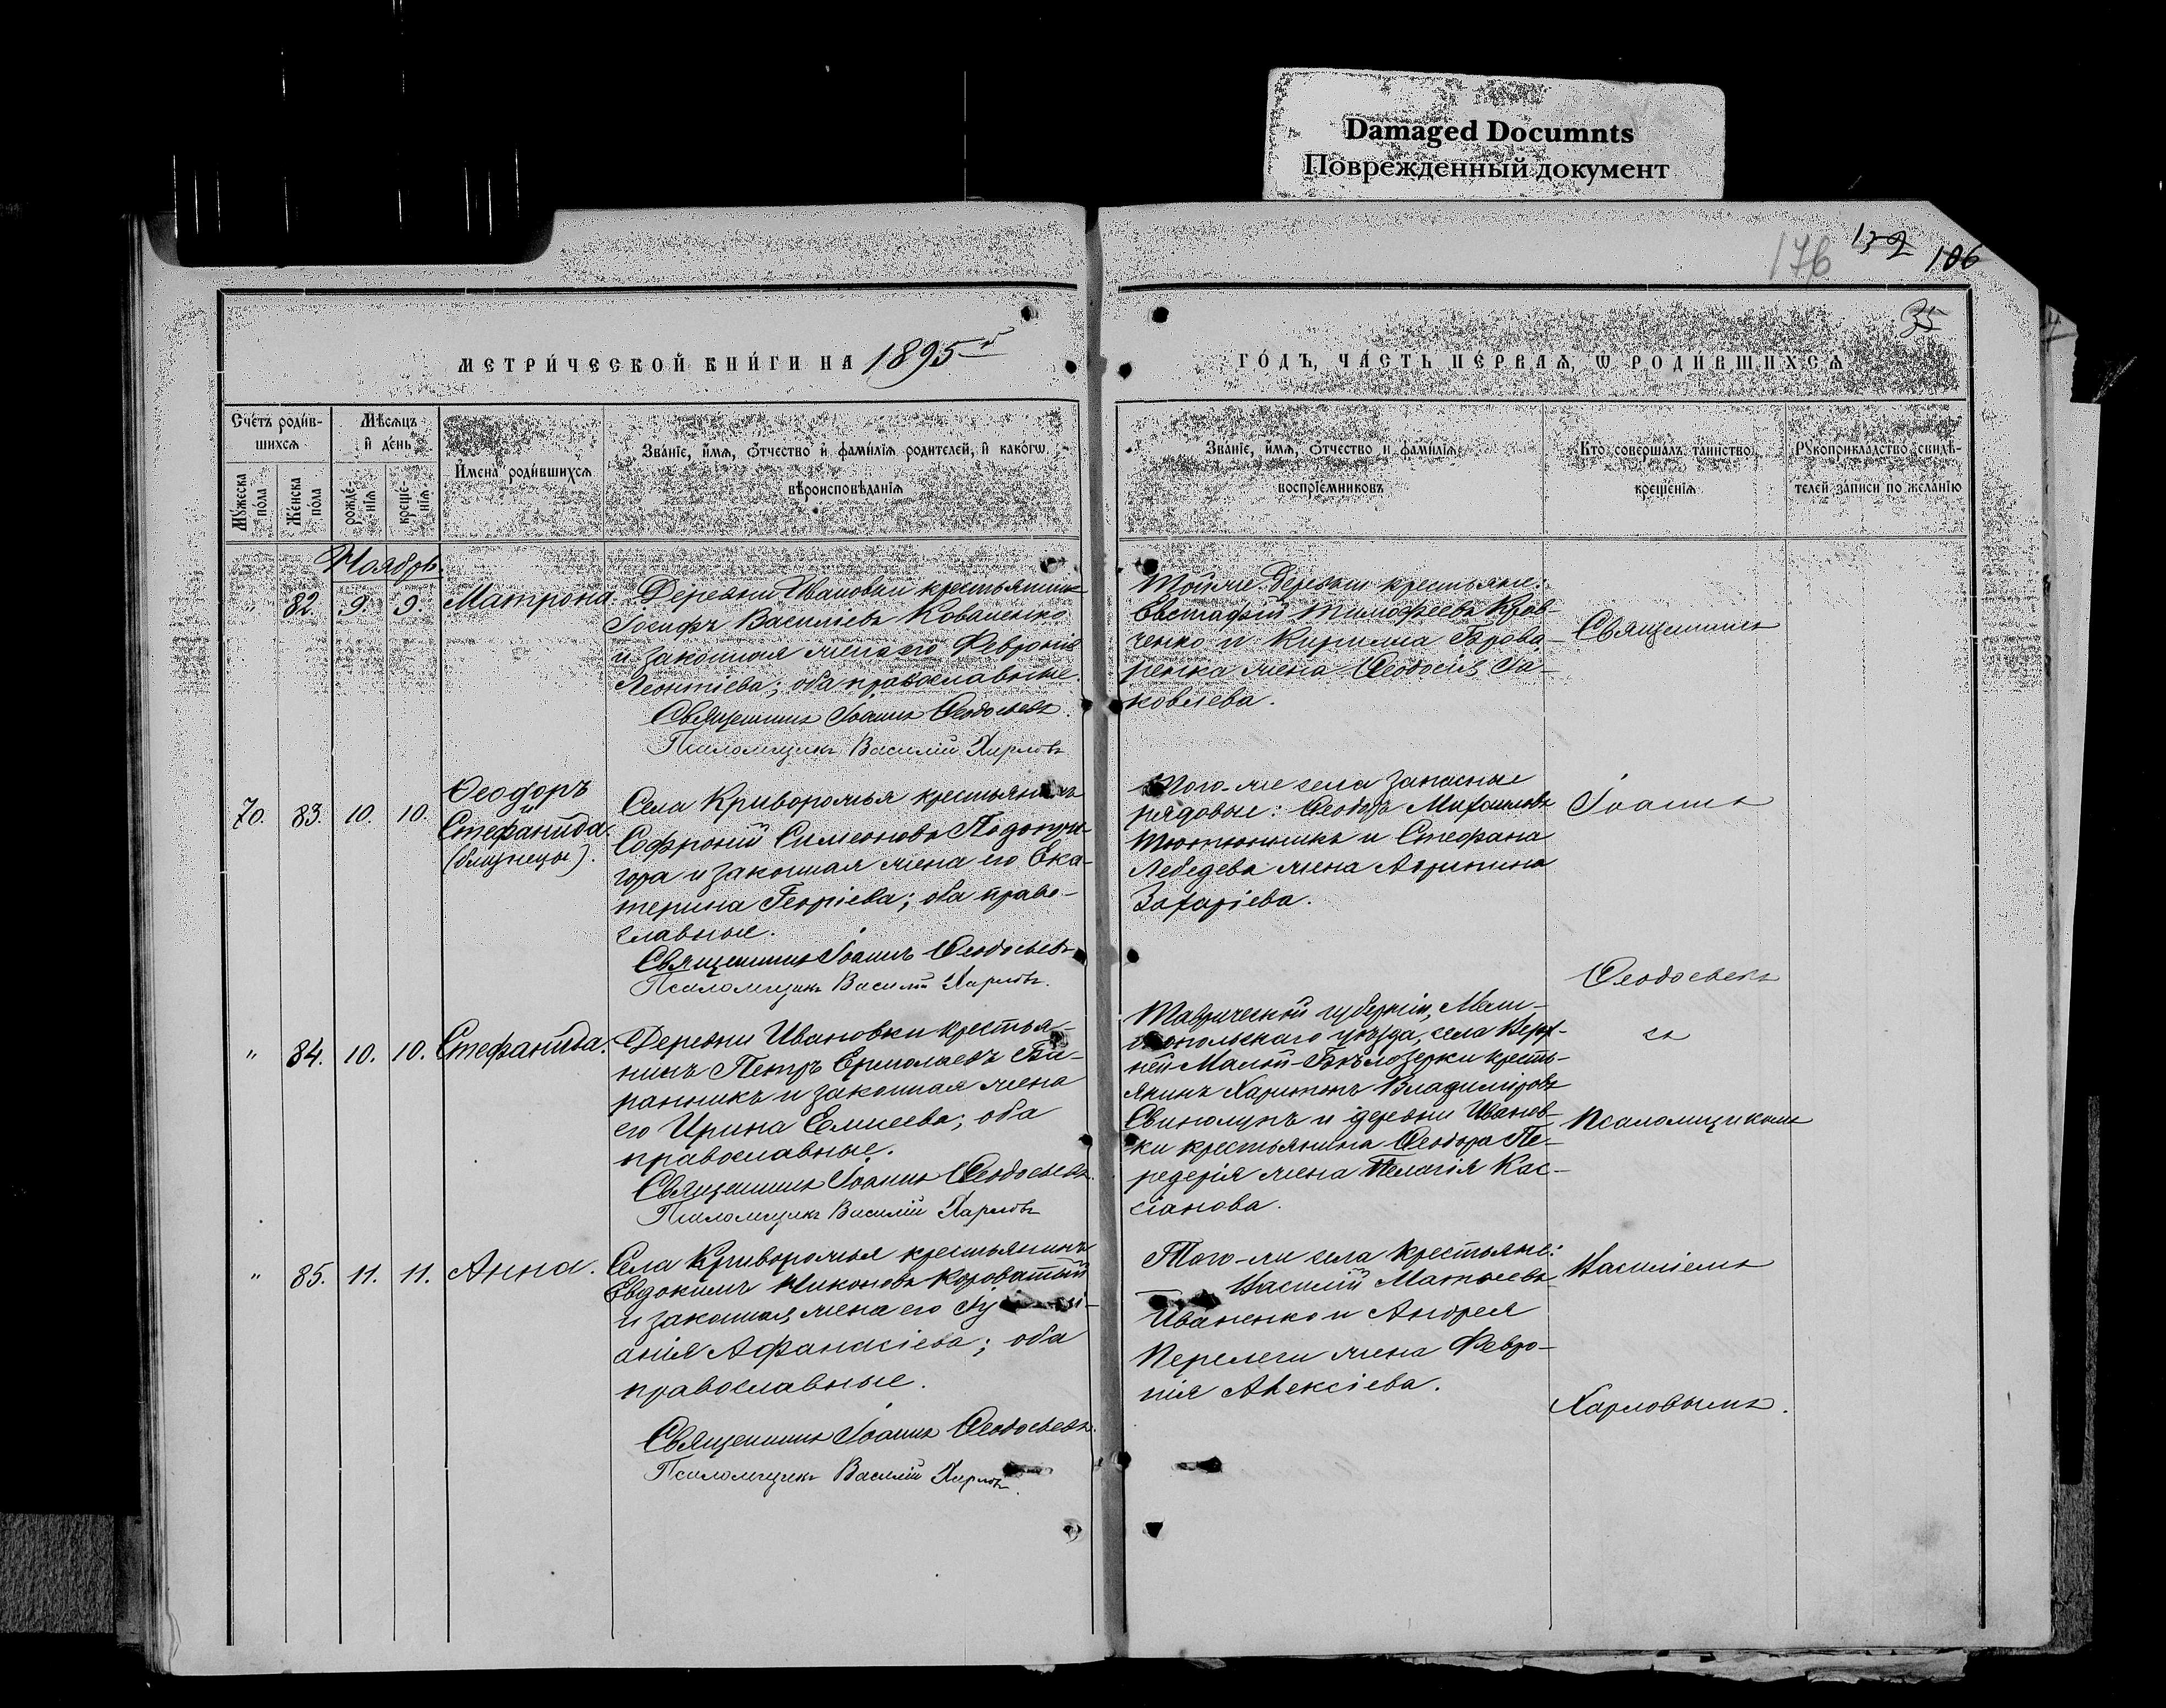 Damaged Documnts
Поврежденный документ
176 132 106
35
МЕТРИ́ЧЕСКОЙ КНИ́ГИ НА 1895 й
ГО́ДЪ, ЧА́СТЬ ПЕ́РВАѦ, Ѡ РОДИ́ВШИХСѦ
Сче́тъ роди́в-
шихсѧ
Мѣ́сѧцъ
и҆ де́нь
Мꙋ́жеска
по́ла
Же́нска
по́ла
рожде́-
нїѧ
креще́-
нїѧ
И҆мена̀ роди́вшихсѧ
Зва́нїе, и҆́мѧ, ѻ҆́тчество и҆ фамѝлїѧ роди́телей, и҆ како́гѡ
вѣроисповѣ́данїѧ
Зва́нїе, и҆́мѧ, ѻ҆́тчество и҆ фами́лїѧ
воспрїе́мниковъ
Кто̀ соверша́лъ та́инство
креще́нїѧ
Рꙋкоприкла́дство свидѣ́-
телей за́писи по жела́нїю
Ноябрь
" 82. 9. 9. Матрона.
Деревни Ивановки крестьянинъ
Іосифъ Василіевъ Коваленко
и законная жена его Февронія
Леонтіева; оба православные.
Священникъ Іоаннъ Ѳеодосьевъ.
Псаломщикъ Василій Харловъ
Той-же деревни крестьяне:
Евстафій Тимофеевъ Крав-
ченко и Кирилла Брова
ренка жена Ѳеодосія Іа-
ковлева.
Священникъ
70. 83. 10. 10. Ѳеодоръ
и
Стефанида.
(близнецы).
Села Криворожья крестьянинъ
Софроній Симеоновъ Подопри-
гора и законная жена его Ека-
терина Георгіева; оба право-
славные.
Священникъ Іоаннъ Ѳеодосьевъ
Псаломщикъ Василій Харловъ.
Того-же села запасные
рядовые: Ѳеодоръ Михаиловъ
Тютюнникъ и Стефана
Лебедева жена Агрипина
Захаріева.
Іоаннъ
Ѳеодосьевъ
" 84. 10. 10. Стефанида.
Деревни Ивановки крестья-
нинъ Петръ Ермолаевъ Ба-
ранникъ и законная жена
его Ирина Елисеева; оба
православные.
Священникъ Іоаннъ Ѳеодосьевъ.
Псаломщикъ Василій Харловъ
Таврической губерніи, Мели-
топольскаго уѣзда, села Верх-
ней-Малой-Бѣлозерки кресть-
янинъ Харитонъ Владиміровъ
Свинолупъ и деревни Иванов-
ки крестьянина Ѳеодора Пе-
редерія жена Пелагія Кас-
сіанова.
съ
псаломщикомъ
" 85. 11. 11. Анна.
Села Криворожья крестьянинъ
Евдокимъ Никоновъ Короватый
и законная жена его
анія Афанасіева; оба
православные.
Священникъ Іоаннъ Ѳеодосьевъ.
Псаломщикъ Василій Харловъ.
Того-же села крестьяне:
Василій Матвеевъ
Иваненко и Андрея
Перелеги жена Февро-
нія Алексіева.
Василіемъ
Харловымъ.